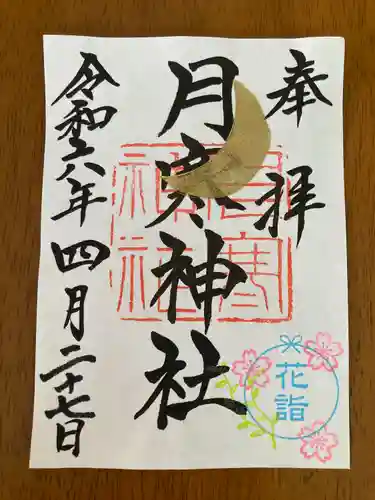 奉拝
月寒神社
月寒神社
令和六年四月二十七日
花詣